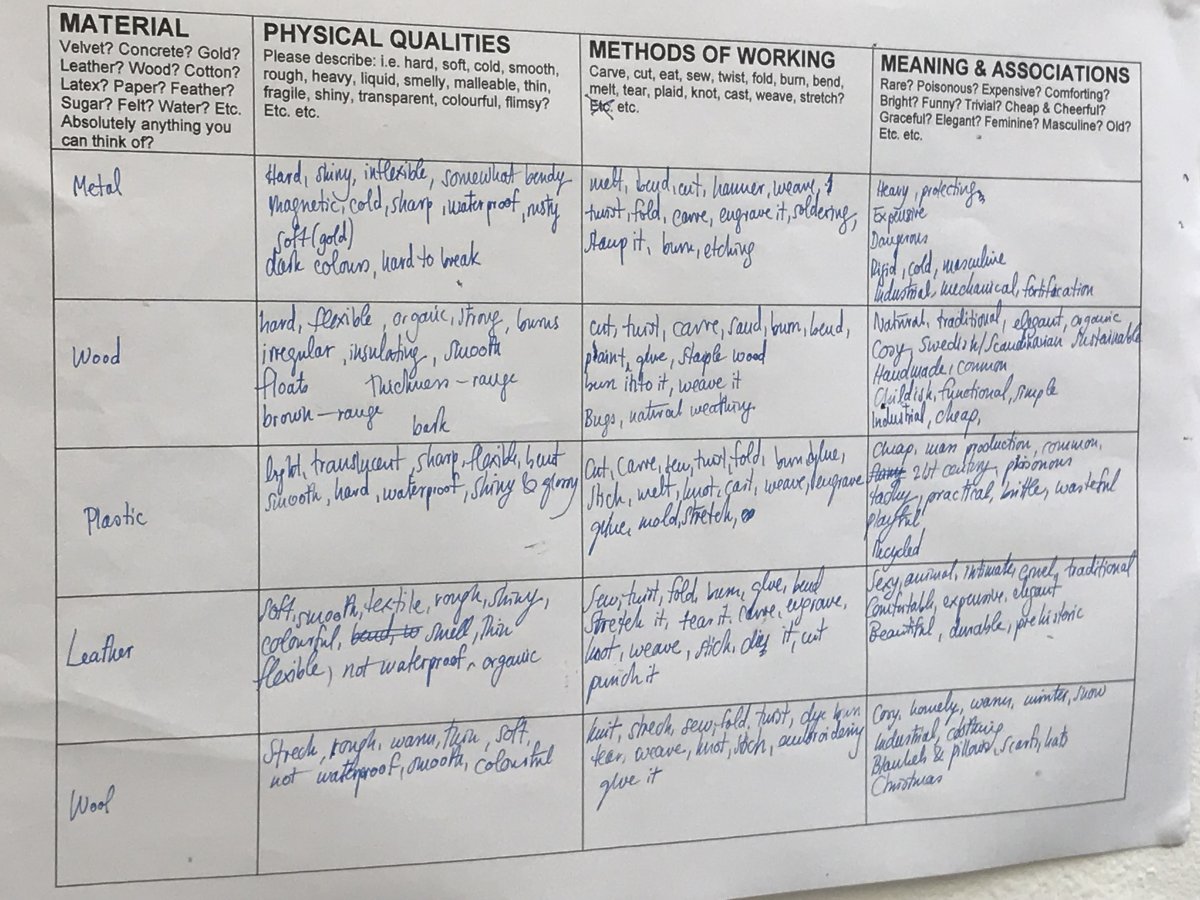 MATERIAL
Velvet? Concrete? Gold?
Leather? Wood? Cotton?
Latex? Paper? Feather?
Sugar? Felt? Water? Etc.
Absolutely anything you
can think of?
PHYSICAL QUALITIES
Please describe: i.e. hard, soft, cold, smooth,
rough, heavy, liquid, smelly, malleable, thin,
fragile, shiny, transparent, colourful, flimsy?
Etc. etc.
METHODS OF WORKING
Carve, cut, eat, sew, twist, fold, burn, bend,
melt, tear, plaid, knot, cast, weave, stretch?
Etc. etc.
MEANING & ASSOCIATIONS
Rare? Poisonous? Expensive? Comforting?
Bright? Funny? Trivial? Cheap & Cheerful?
Graceful? Elegant? Feminine? Masculine? Old?
Etc. etc.
Metal
Hard, shiny, inflexible, somewhat bendy
magnetic, cold, sharp, waterproof, rusty
soft (gold)
dark colours, hard to break
melt, bend, cut, hammer, weave,
twist, fold, carve, engrave it, soldering,
stamp it, burn, etching
Heavy, protecting,
Expensive
Dangerous
Rigid, cold, masculine
Industrial, mechanical, fortifacation
Wood
hard, flexible, organic, strong, burns
irregular, insulating, smooth
floats Thickness – range
brown – range bark
cut, twist, carve, sand, burn, bend,
paint, glue, staple wood
burn into it, weave it
Bugs, natural weathing
Natural, traditional, elegant, organic
Cosy, Swedish/Scandinavian Sustainable
Handmade, common
Childish, functional, simple
Industrial, cheap,
Plastic
light, translucent, sharp, flexible, bent
smooth, hard, waterproof, shiny & glossy
Cut, carve, sew, twist, fold, burn, glue,
stich, melt, knot, cast, weave, engrave
glue, mold, stretch,
Cheap, man production, common,
21st century, poisonous
tacky, practical, brittle, wasteful
playful
Recycled
Leather
Soft, smooth, textile, rough, shiny,
colourful, smell, thin
flexible, not waterproof, organic
Sew, twist, fold, burn, glue, bend
Stretch it, tear it, carve, engrave,
knot, weave, stich, dye it, cut
punch it
Sexy, animal, intimate, cruel, traditional
Comfortable, expensive, elegant
Beautiful, durable, prehistoric
Wool
Strech, rough, warm, thin, soft,
not waterproof, smooth, colourful
knit, strech, sew, fold, twist, dye burn
tear, weave, knot, stich, embroidery
glue it
Cosy, homely, warm, winter, snow
Industrial, clothing
Blankets & pillows, scarfs, hats
Christmas